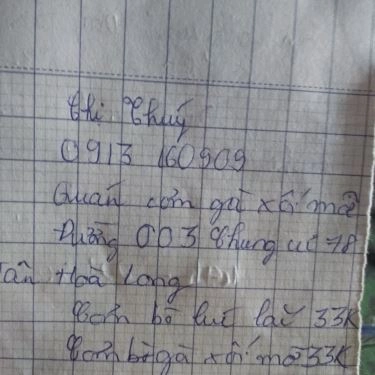 Chị Thuý
0913 160909
Quán cơm gà xối mỡ
Đường 003 Chung cư 78
Tân Hoà Long
Cơm bò lúc lắc 33K
Cơm bò gà xối mỡ 33K